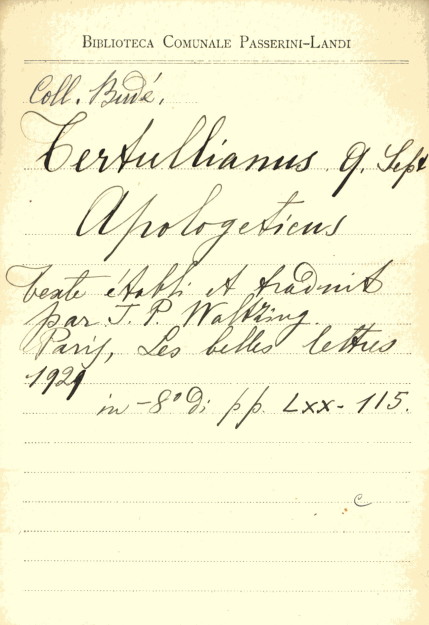 BIBLIOTECA COMUNALE PASSERINI-LANDI
Coll. Budé.
Tertullianus Q. Sept
Apologeticus
texte établi et traduit
par J. P. Waltzing.
Paris, Les belles lettres
1929
in-8° di pp. LXX-115.
c